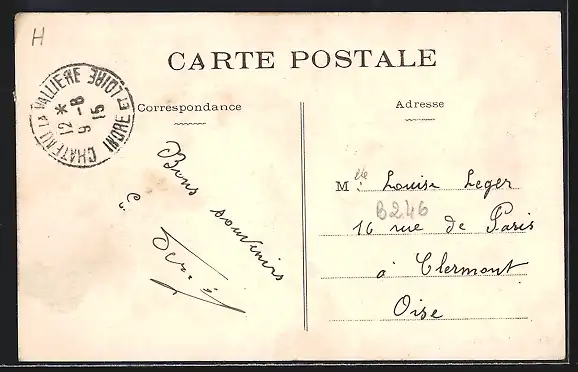 H
CARTE POSTALE
CHATEAU LA VALLIERE
INDRE ET LOIRE
12 *
9 - 8
15
Correspondance
Adresse
Bons souvenirs
Mlle Louise Leger
B246
16 rue de Paris
à Clermont
Oise